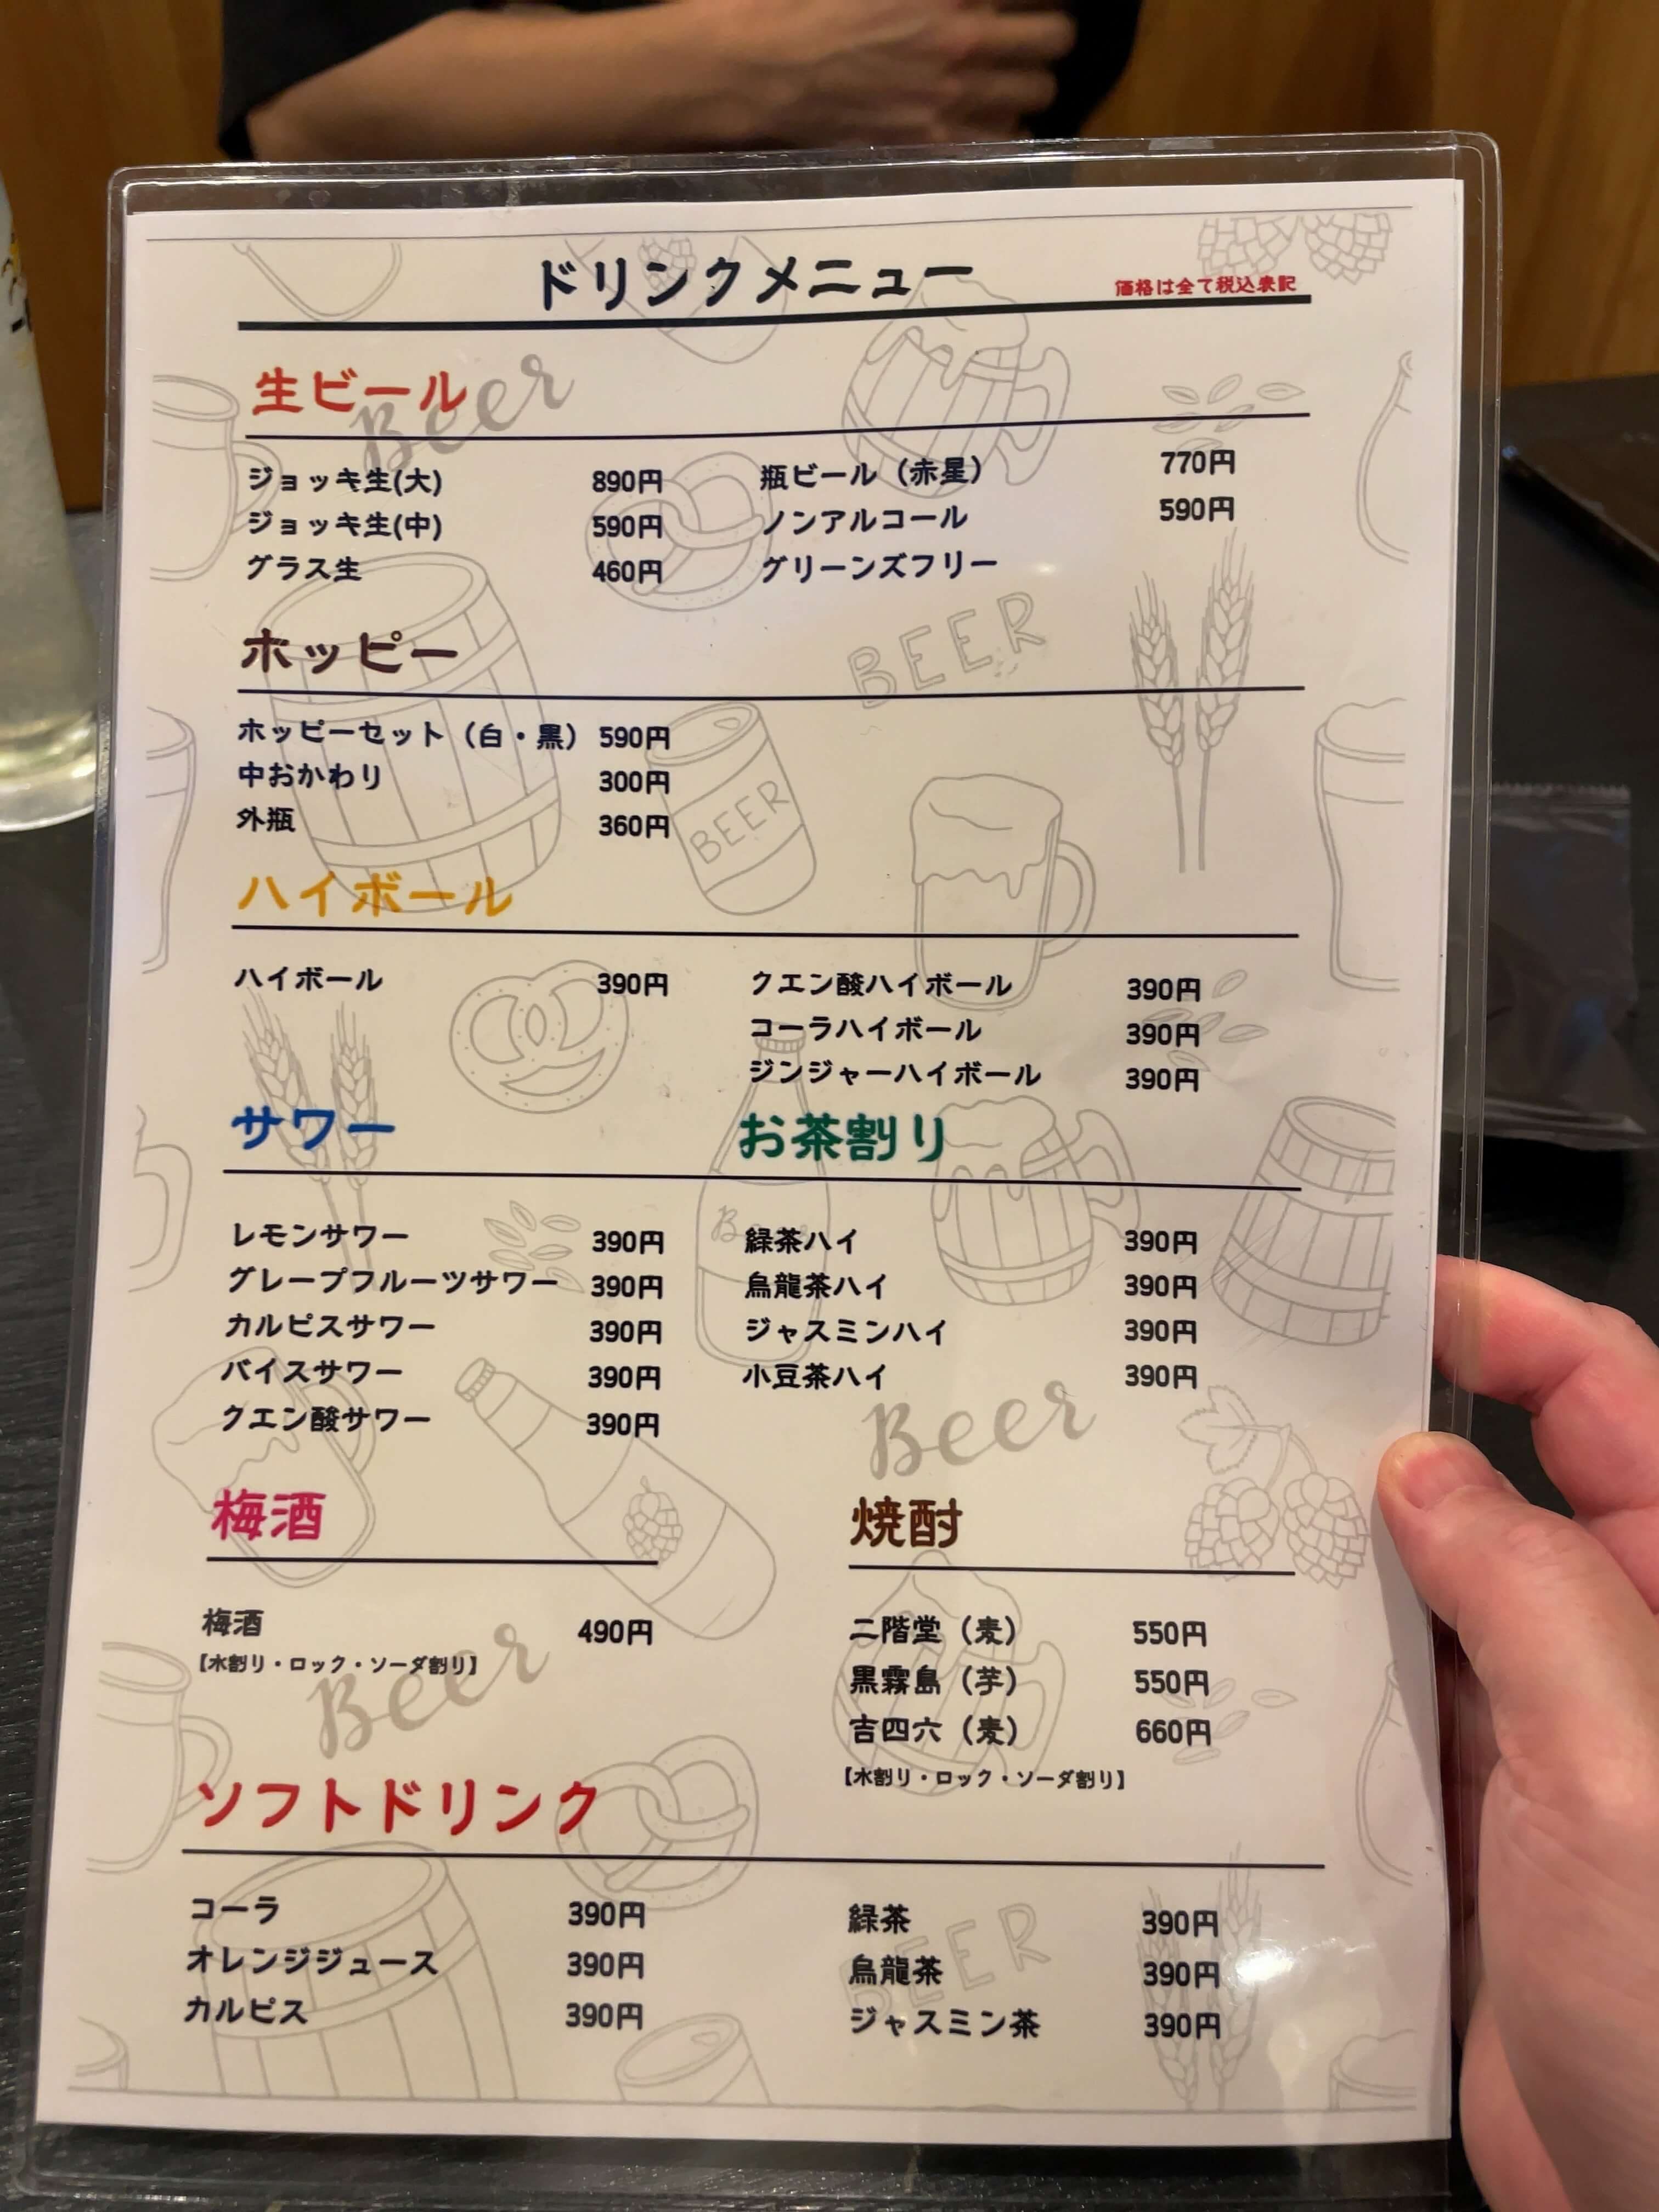 ドリンクメニュー
価格は全て税込表記
生ビール
ジョッキ生(大) 890円
ジョッキ生(中) 590円
グラス生 460円
瓶ビール（赤星） 770円
ノンアルコール 590円
グリーンズフリー
ホッピー
ホッピーセット（白・黒） 590円
中おかわり 300円
外瓶 360円
ハイボール
ハイボール 390円
クエン酸ハイボール 390円
コーラハイボール 390円
ジンジャーハイボール 390円
サワー
レモンサワー 390円
グレープフルーツサワー 390円
カルピスサワー 390円
バイスサワー 390円
クエン酸サワー 390円
お茶割り
緑茶ハイ 390円
烏龍茶ハイ 390円
ジャスミンハイ 390円
小豆茶ハイ 390円
梅酒
梅酒 490円
【水割り・ロック・ソーダ割り】
焼酎
二階堂（麦） 550円
黒霧島（芋） 550円
吉四六（麦） 660円
【水割り・ロック・ソーダ割り】
ソフトドリンク
コーラ 390円
オレンジジュース 390円
カルピス 390円
緑茶 390円
烏龍茶 390円
ジャスミン茶 390円
Beer
BEER
BEER
Beer
Beer
Beer
BEER